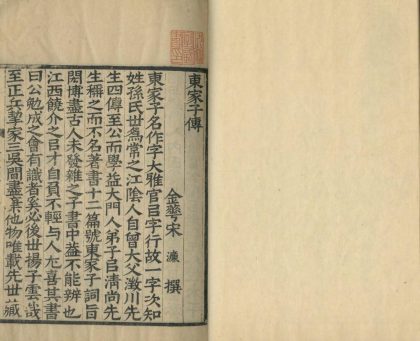 東家子傳
金華宋濂撰
東家子名作字大雅官㠯字行故一字次知
姓孫氏世為常之江陰人自曾大父澂川先
生四傳至公而學益大門人弟子㠯清尚先
生稱之而不名著書十二篇號東家子詞旨
閎博盡古人未發雜之子書中葢不能辨也
江西饒介之㠯才自負不輕與人尤喜其書
曰公勉成之會有識者奚必後世揚子雲哉
至正兵挈家三吳間盡棄他物唯載先世藏